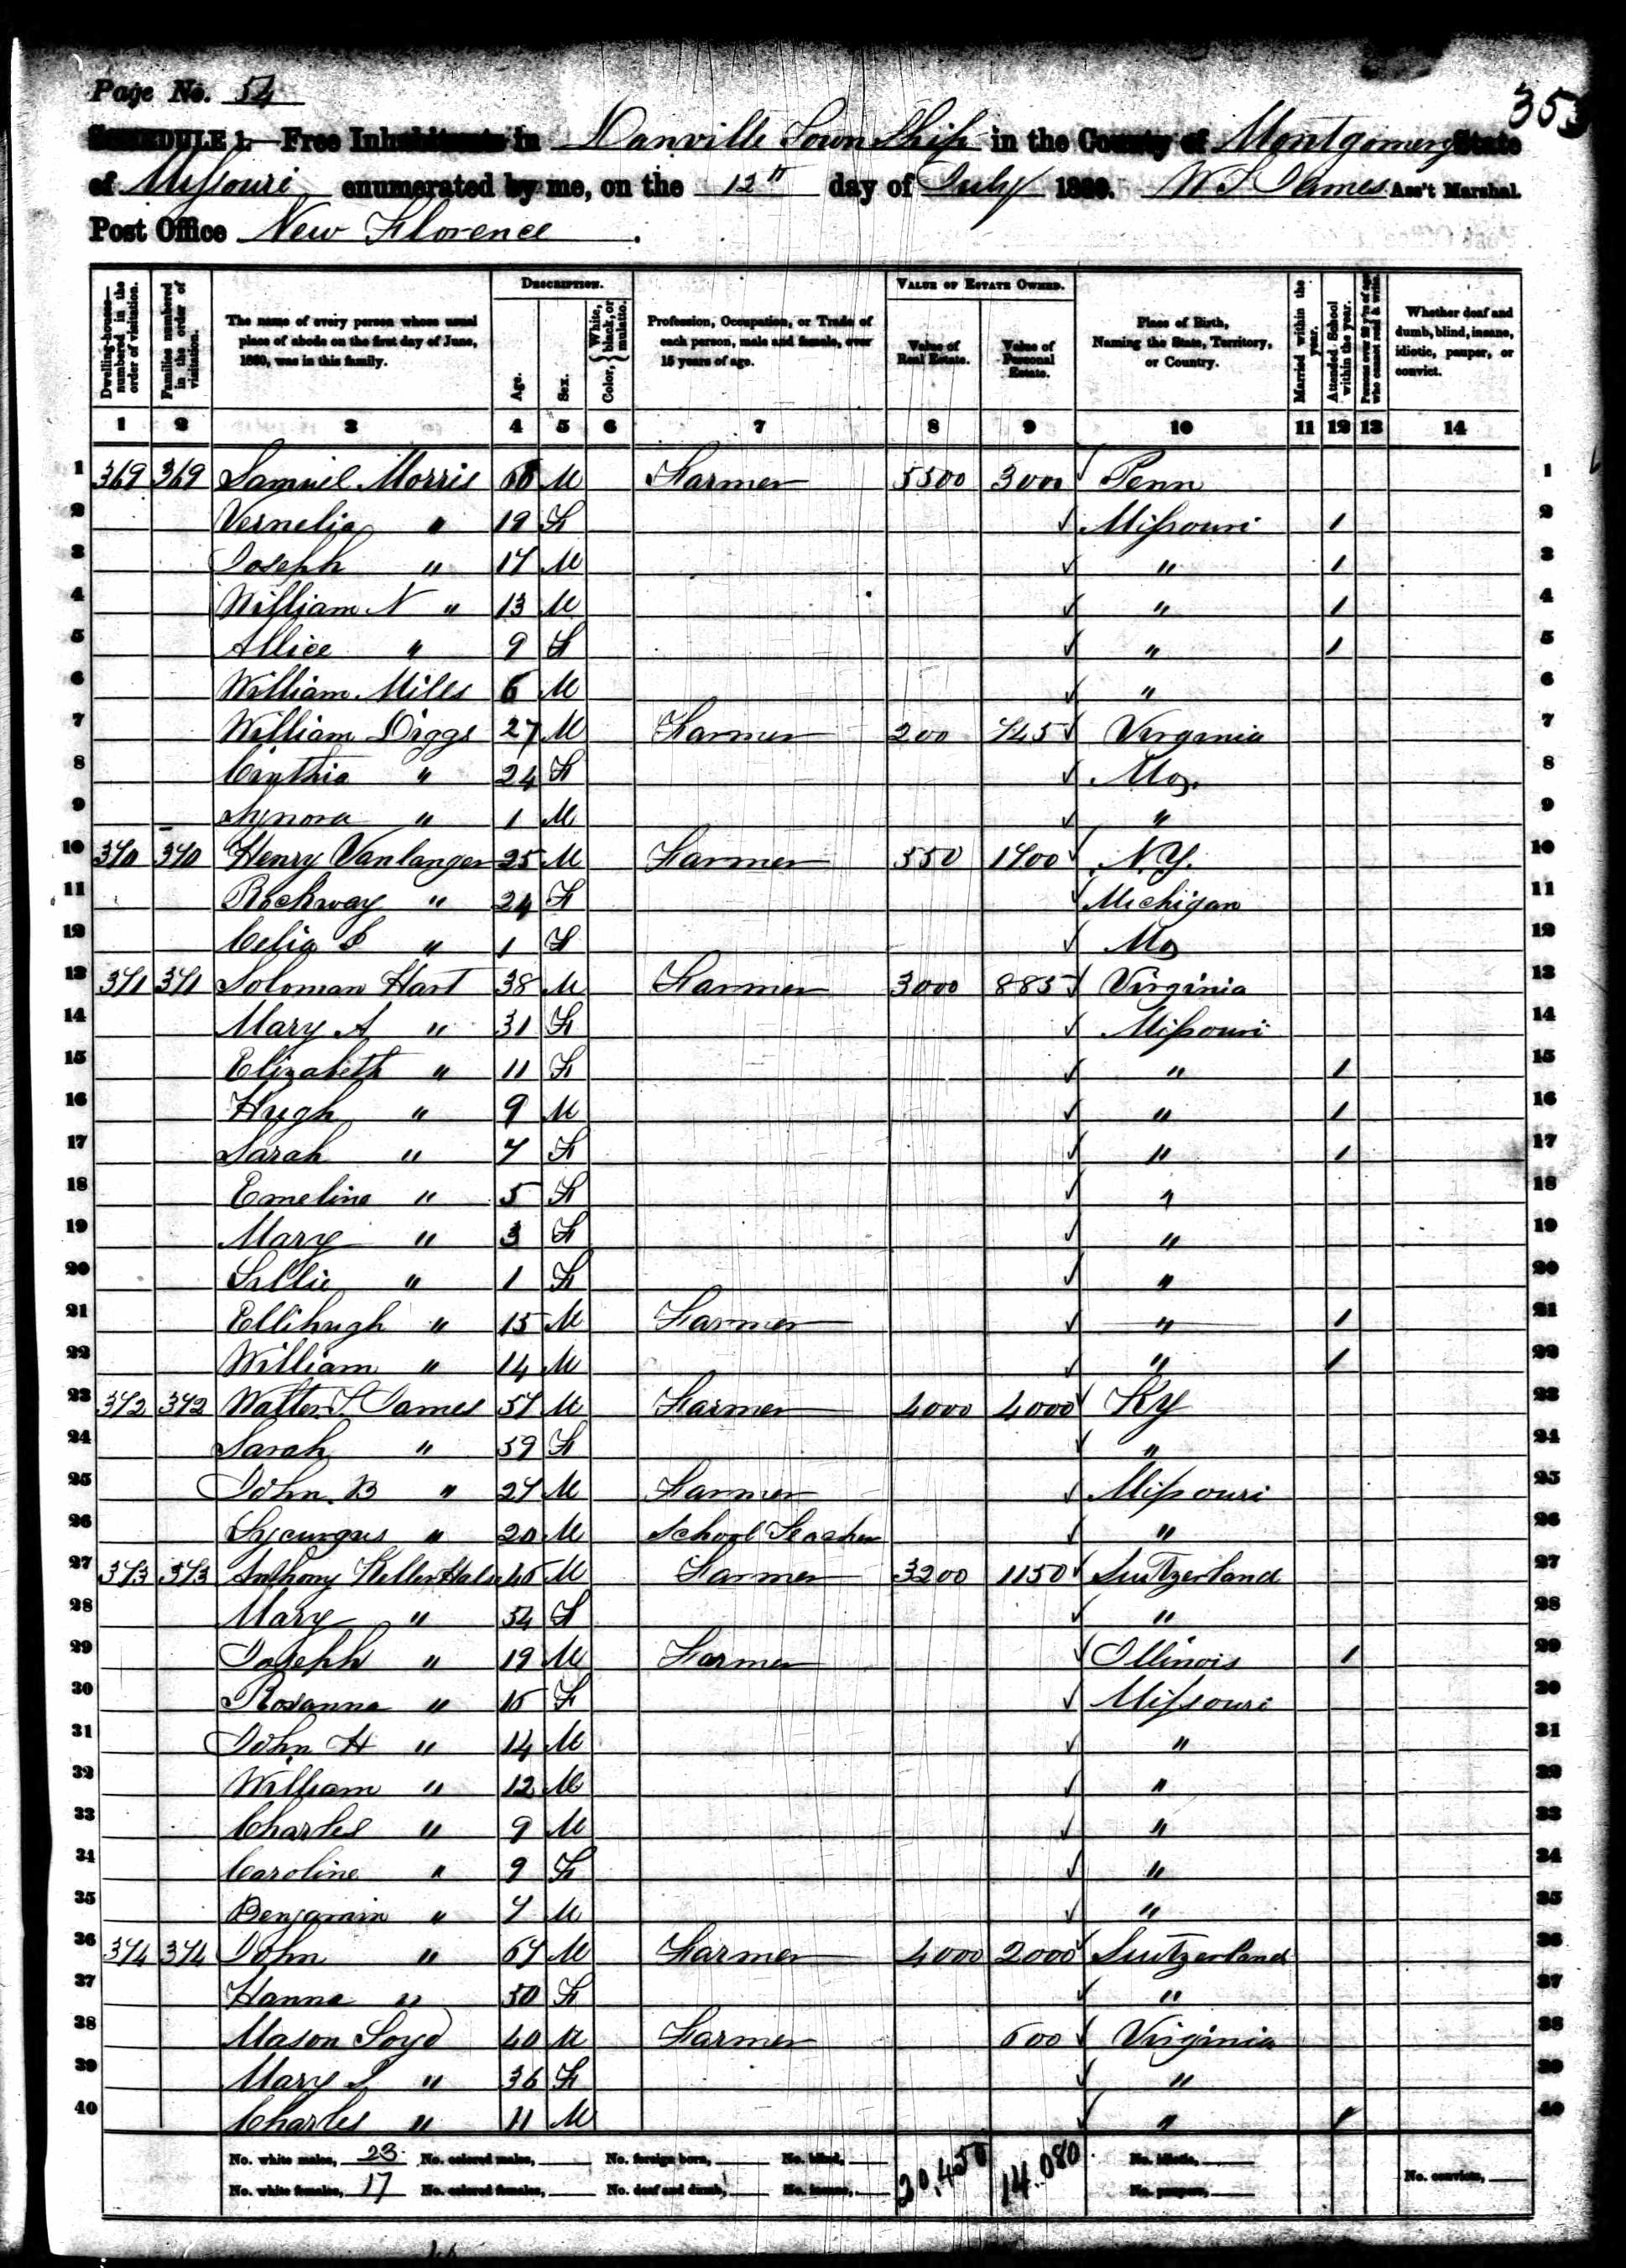 Page No. 54
353
SCHEDULE 1.—Free Inhabitants in Danville Township in the County of Montgomery State
of Missouri enumerated by me, on the 12th day of July 1860. W S James Ass't Marshal.
Post Office New Florence.
DESCRIPTION. VALUE OF ESTATE OWNED.
Dwelling-houses—numbered in the order of visitation. Families numbered in the order of visitation. The name of every person whose usual place of abode on the first day of June, 1860, was in this family. Age. Sex. Color, {White, black, or mulatto. Profession, Occupation, or Trade of each person, male and female, over 15 years of age. Value of Real Estate. Value of Personal Estate. Place of Birth, Naming the State, Territory, or Country. Married within the year. Attended School within the year. Persons over 20 y'rs of age who cannot read & write. Whether deaf and dumb, blind, insane, idiotic, pauper, or convict.
1 2 3 4 5 6 7 8 9 10 11 12 13 14
1 369 369 Samuel Morris M Farmer 5500 3000 ✓ Penn 1
2 Vernelia " 19 F ✓ Missouri / 2
3 Joseph " 17 M ✓ " / 3
4 William N " 13 M ✓ " / 4
5 Allice " 9 F ✓ " / 5
6 William Mills 6 M ✓ " 6
7 William Diggs 27 M Farmer 200 745 ✓ Virginia 7
8 Cinthia " 24 F ✓ Mo. 8
9 " 1 M ✓ " 9
10 370 370 Henry Vanlanger 25 M Farmer 550 1700 ✓ N.Y. 10
11 Rockway " 24 F ✓ Michigan 11
12 Celia " 1 F ✓ Mo 12
13 371 371 Soloman Hart 38 M Farmer 3000 885 ✓ Virginia 13
14 Mary A " 31 F ✓ Missouri 14
15 Elizabeth " 11 F ✓ " / 15
16 Hugh " 9 M ✓ " / 16
17 Sarah " 7 F ✓ " / 17
18 Emeline " 5 F ✓ " 18
19 Mary " 3 F ✓ " 19
20 Sallie " 1 F ✓ " 20
21 Ellihugh " 15 M Farmer ✓ " / 21
22 William " 14 M ✓ " / 22
23 372 372 Walter S James 57 M Farmer 4000 4000 ✓ Ky 23
24 Sarah " 59 F ✓ " 24
25 John B " 27 M Farmer ✓ Missouri 25
26 Lycurgus " 20 M School Teacher ✓ " 26
27 373 373 Anthony KellerHals 45 M Farmer 3200 1150 ✓ Switzerland 27
28 Mary " 54 F ✓ " 28
29 Joseph " 19 M Farmer ✓ Illinois / 29
30 Rosanna " 15 F ✓ Missouri 30
31 John H " 14 M ✓ " 31
32 William " 12 M ✓ " 32
33 Charles " 9 M ✓ " 33
34 Caroline " 9 F ✓ " 34
35 Benjamin " 7 M ✓ " 35
36 374 374 John " 67 M Farmer 4000 2000 ✓ Switzerland 36
37 Hanna " 50 F ✓ " 37
38 Mason Loyd 40 M Farmer 600 ✓ Virginia 38
39 Mary " 36 F ✓ " 39
40 Charles " 11 M ✓ " / 40
No. white males, 23 No. colored males, No. foreign born, No. blind, 20,450 14,080 No. idiotic,
No. white females, 17 No. colored females, No. deaf and dumb, No. insane, No. paupers, No. convicts,